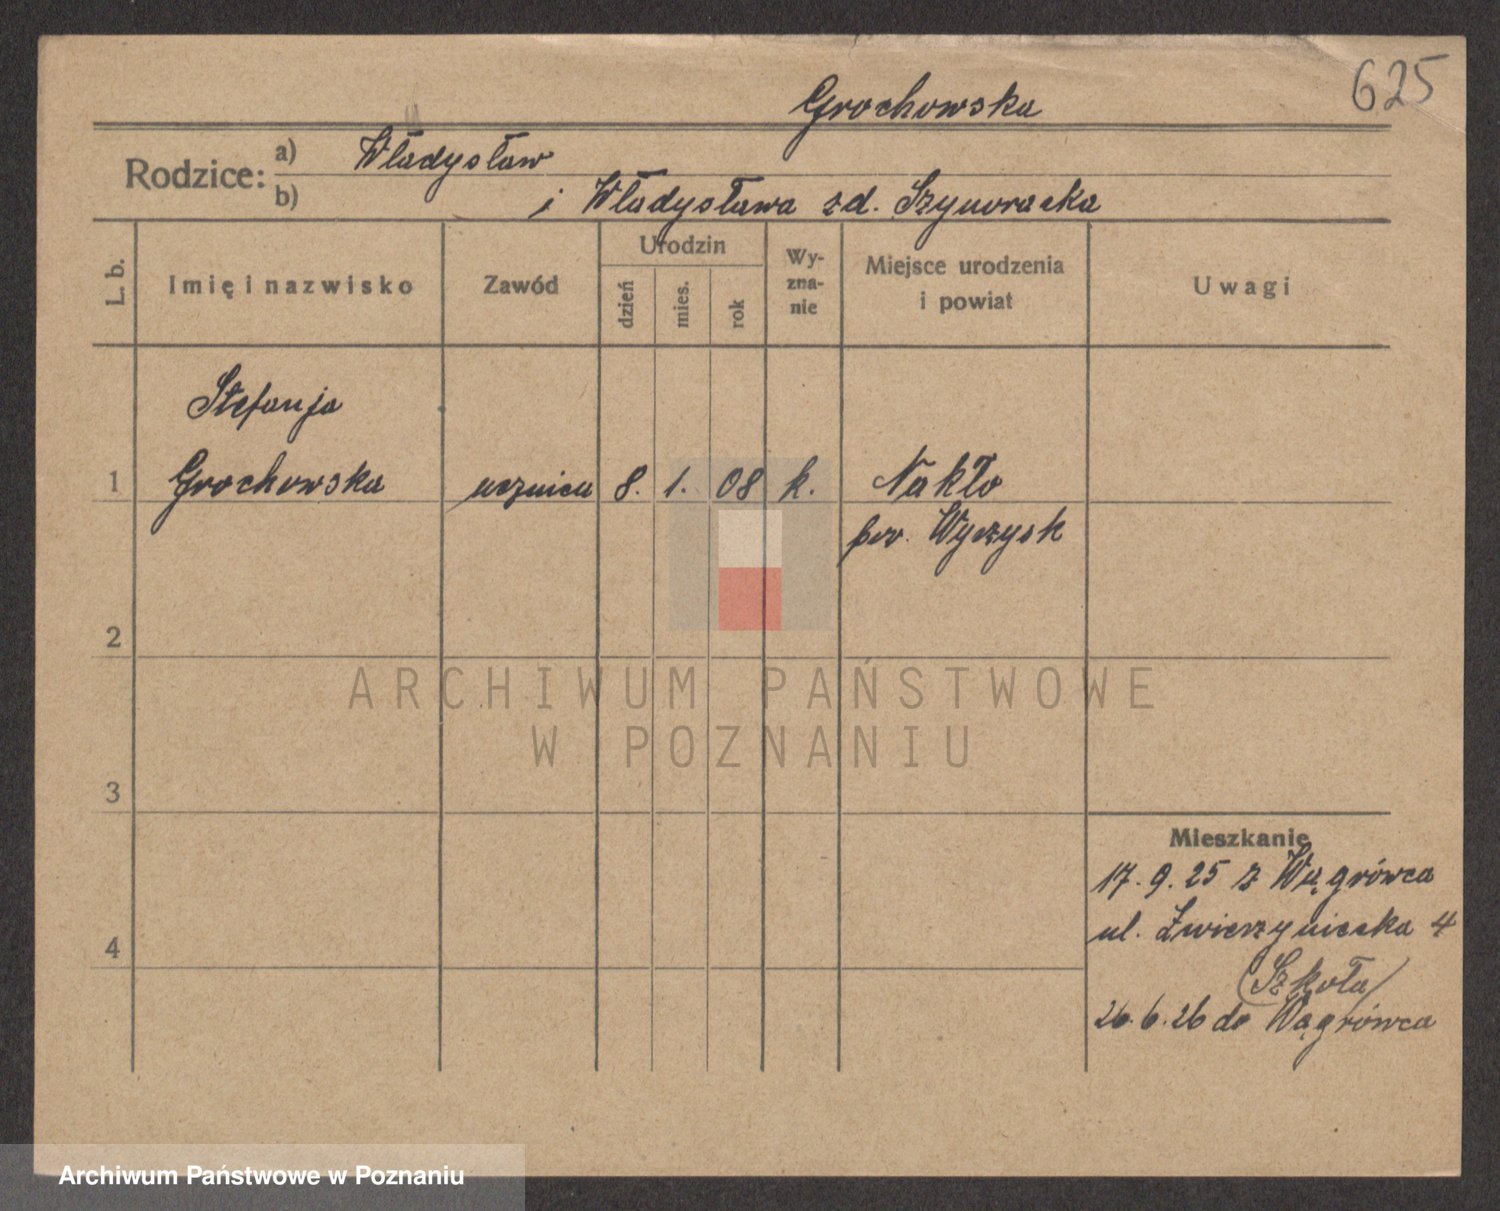 625
Grochowska
Rodzice:
a) Władysław
b) i Władysława zd. Szymoracka
L. b.
Imię i nazwisko
Zawód
Urodzin
dzień
mies.
rok
Wy-
zna-
nie
Miejsce urodzenia
i powiat
Uwagi
Stefanja
1 Grochowska ucznica 8. 1. 08 k. Nakło
pow. Wyrzysk
2
3
4
Mieszkanie
17.9.25 z Wągrówca
ul. Zwierzyniecka 4
(Szkoła)
26.6.26 do Wągrówca
ARCHIWUM PAŃSTWOWE
W POZNANIU
Archiwum Państwowe w Poznaniu